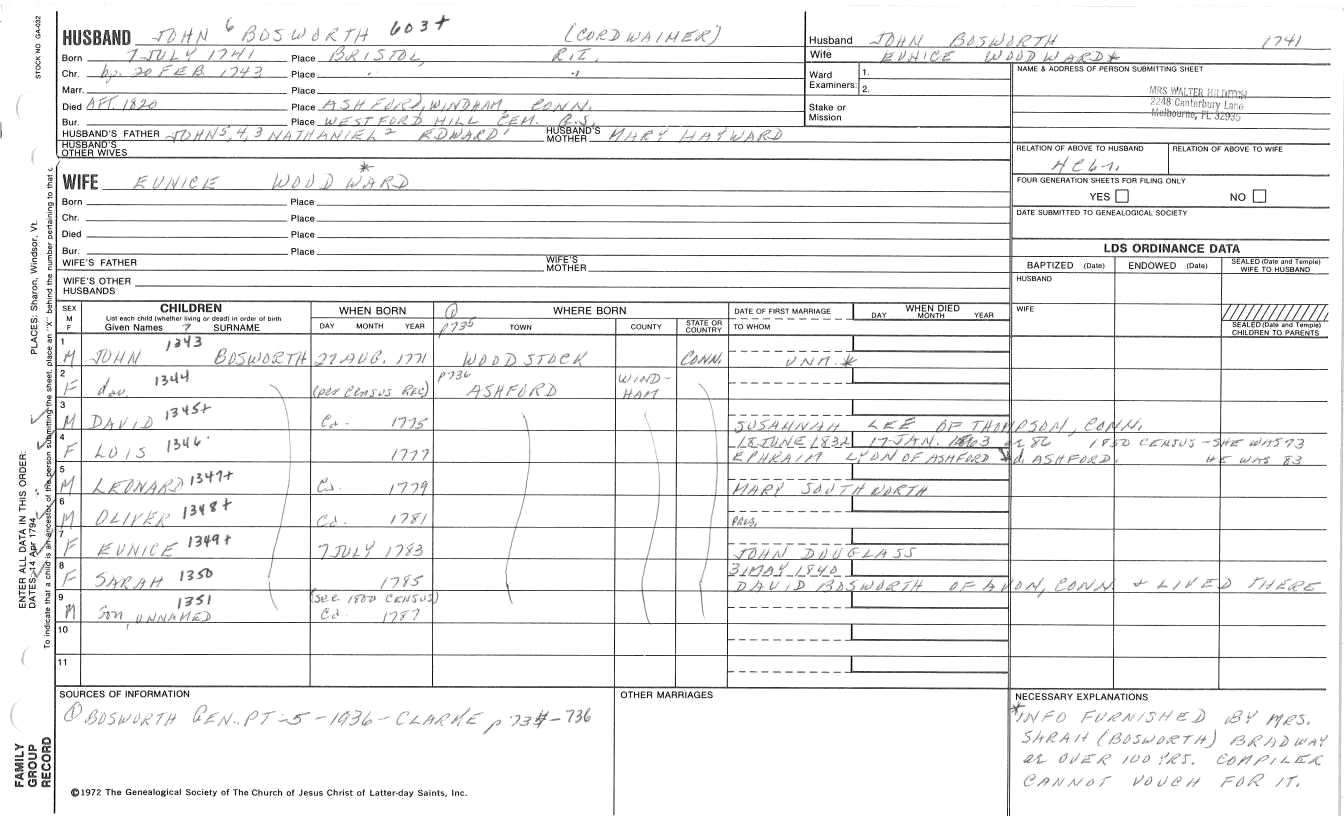 STOCK NO GA-032
HUSBAND JOHN 6 BOSWORTH 603+ (CORDWAINER)
Born 7 JULY 1741 Place BRISTOL, R.I.
Chr. bp. 20 FEB 1743 Place
Marr. Place
Died AFT. 1820 Place ASHFORD, WINDHAM, CONN.
Bur. Place WESTFORD HILL CEM. G.S.
HUSBAND'S FATHER JOHN 5,4,3 NATHANIEL 2 EDWARD 1 HUSBAND'S MOTHER MARY HAYWARD
HUSBAND'S OTHER WIVES
Husband JOHN BOSWORTH 1741
Wife EUNICE WOODWARD*
Ward Examiners: 1.
2.
Stake or Mission
NAME & ADDRESS OF PERSON SUBMITTING SHEET
MRS WALTER HILDITCH
2248 Canterbury Lane
Melbourne, FL 32935
RELATION OF ABOVE TO HUSBAND RELATION OF ABOVE TO WIFE
FOUR GENERATION SHEETS FOR FILING ONLY
YES NO
DATE SUBMITTED TO GENEALOGICAL SOCIETY
WIFE EUNICE WOODWARD *
Born Place
Chr. Place
Died Place
Bur. Place
WIFE'S FATHER WIFE'S MOTHER
WIFE'S OTHER HUSBANDS
LDS ORDINANCE DATA
BAPTIZED (Date) ENDOWED (Date) SEALED (Date and Temple) WIFE TO HUSBAND
HUSBAND
WIFE
SEALED (Date and Temple) CHILDREN TO PARENTS
SEX M F
CHILDREN
List each child (whether living or dead) in order of birth
Given Names 7 SURNAME
WHEN BORN
DAY MONTH YEAR
① p735
WHERE BORN
TOWN COUNTY STATE OR COUNTRY
DATE OF FIRST MARRIAGE
TO WHOM
WHEN DIED
DAY MONTH YEAR
1 M JOHN 1343 BOSWORTH 27 AUG. 1771 WOODSTOCK CONN. UNM.*
2 F dau. 1344 (per CENSUS REC) p736 ASHFORD WIND-HAM
3 M DAVID 1345+ Ca. 1775 SUSANNAH LEE OF THOMPSON, CONN.
4 F LOIS 1346 1777 18 JUNE 1832 17 JAN. 1863 ae 86 1850 CENSUS - SHE WAS 73
EPHRAIM LYON OF ASHFORD d. ASHFORD. HE WAS 83
5 M LEONARD 1347+ Ca. 1779 MARY SOUTHWORTH
6 M OLIVER 1348+ Ca. 1781 PROB.
7 F EUNICE 1349+ 7 JULY 1783 JOHN DOUGLASS
8 F SARAH 1350 1785 31 MAY 1840
DAVID BOSWORTH OF AVON, CONN & LIVED THERE
9 M son, UNNAMED 1351 (SEE 1800 CENSUS) Ca. 1787
10
11
SOURCES OF INFORMATION
① BOSWORTH GEN. PT-5-1936-CLARKE p 734-736
OTHER MARRIAGES
NECESSARY EXPLANATIONS
*INFO FURNISHED BY MRS.
SARAH (BOSWORTH) BRADWAY
ae OVER 100 YRS. COMPILER
CANNOT VOUCH FOR IT.
©1972 The Genealogical Society of The Church of Jesus Christ of Latter-day Saints, Inc.
FAMILY GROUP RECORD
ENTER ALL DATA IN THIS ORDER:
DATES: 14 Apr 1794
PLACES: Sharon, Windsor, Vt.
To indicate that a child is an ancestor of the person submitting the sheet, place an "X" behind the number pertaining to that c